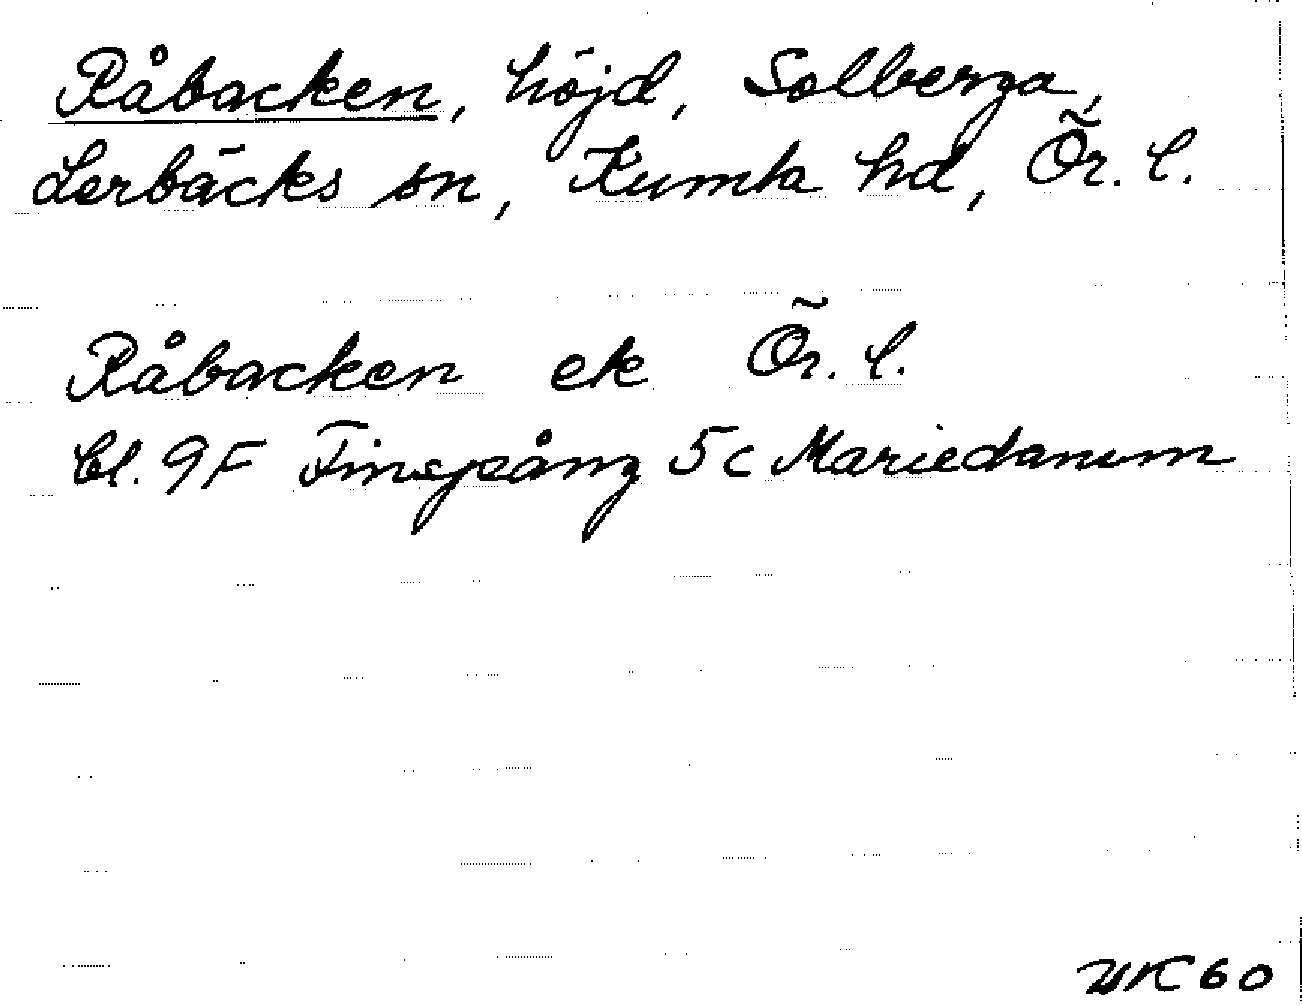 Råbacken, höjd, Solberga,
Lerbäcks sn, Kumla hd, Ör. l.
Råbacken ek Ör. l.
bl. 9F Finspång 5c Mariedamm
WK 60